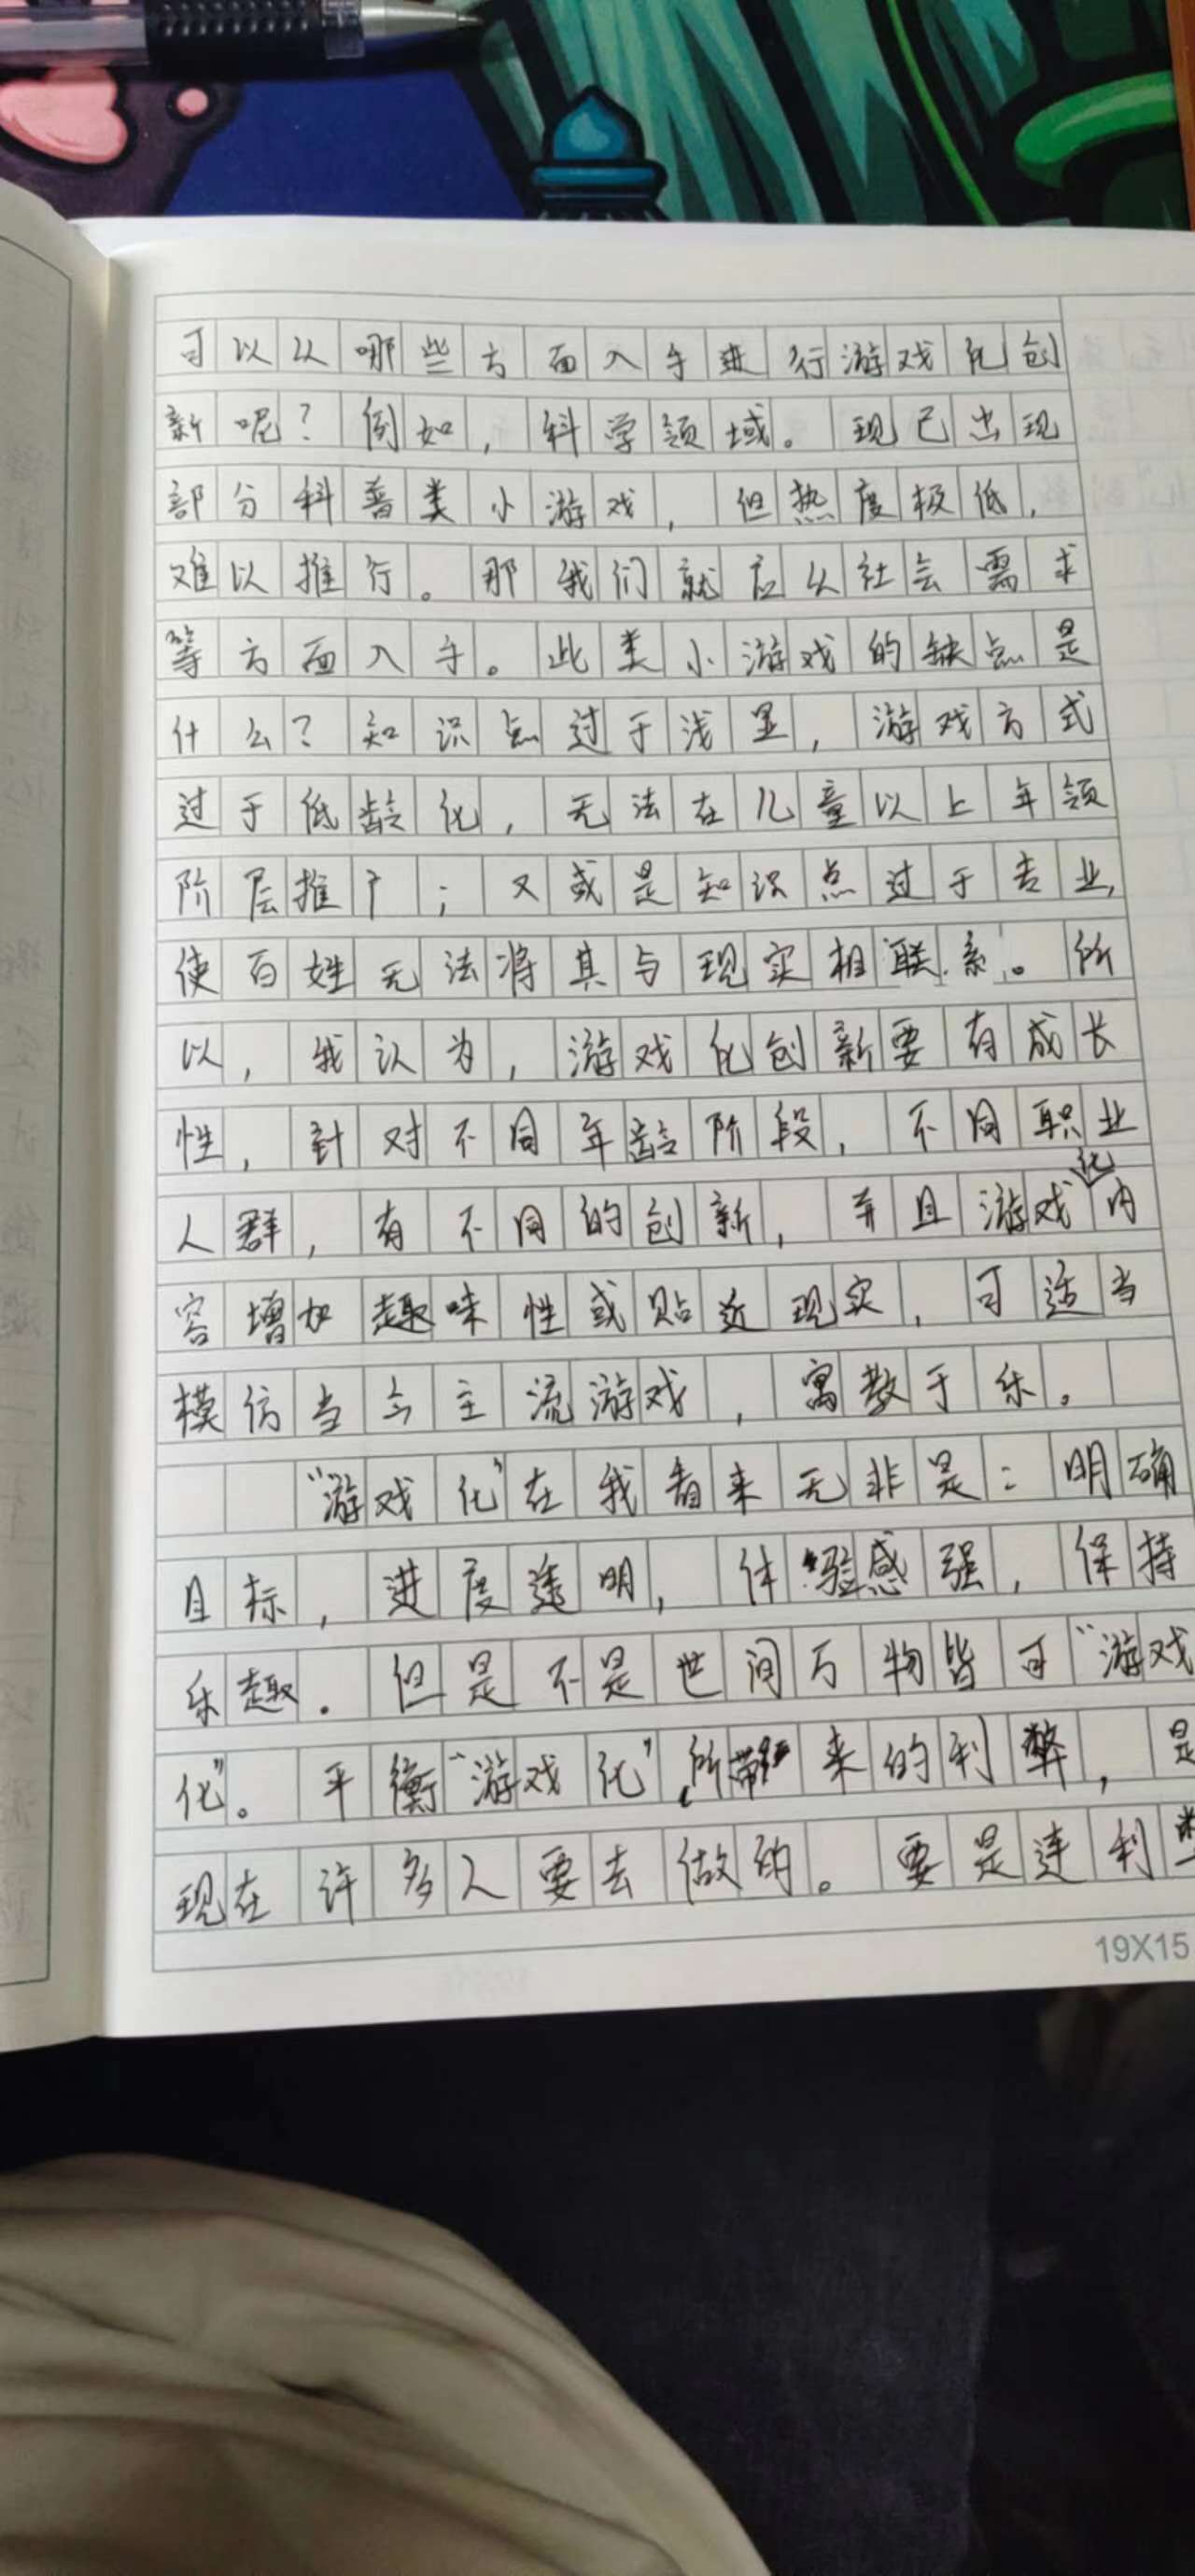 可以从哪些方面入手进行游戏化创
新呢？例如，科学领域。现已出现
部分科普类小游戏，但热度极低，
难以推行。那我们就应从社会需求
等方面入手。此类小游戏的缺点是
什么？知识点过于浅显，游戏方式
过于低龄化，无法在儿童以上年领
阶层推广；又或是知识点过于专业，
使百姓无法将其与现实相联系。所
以，我认为，游戏化创新要有成长
性，针对不同年龄阶段，不同职业
人群，有不同的创新，并且游戏化内
容增加趣味性或贴近现实，可适当
模仿当今主流游戏，寓教于乐。
“游戏化”在我看来无非是：明确
目标，进度透明，体验感强，保持
乐趣。但是不是世间万物皆可“游戏
化”。平衡“游戏化”所带来的利弊，是
现在许多人要去做的。要是连利
19X15